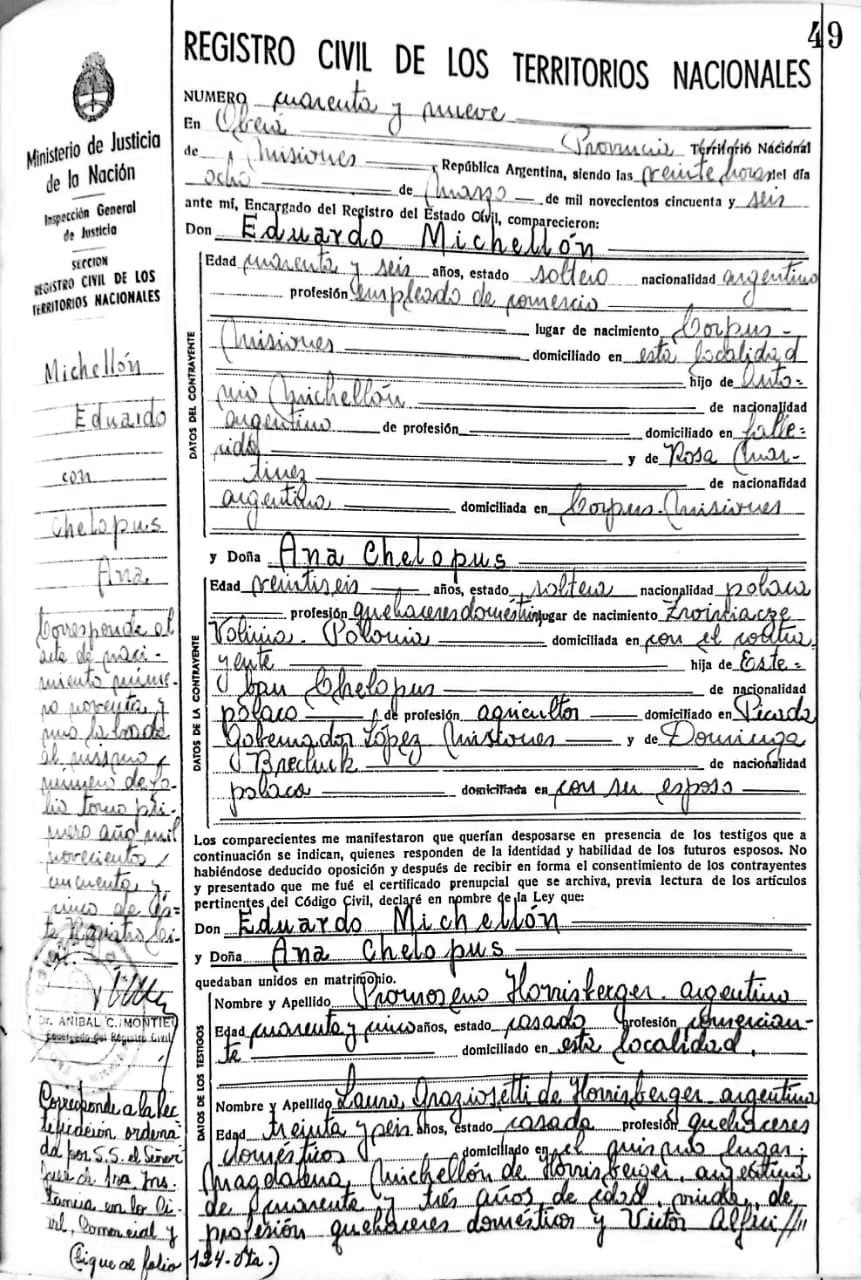 49
REGISTRO CIVIL DE LOS TERRITORIOS NACIONALES
NUMERO cuarenta y nueve
En Oberá Provincia Territorio Nacional
de Misiones, República Argentina, siendo las veinte horas del día
ocho de Marzo de mil novecientos cincuenta y seis
ante mí, Encargado del Registro del Estado Civil, comparecieron:
Don Eduardo Michellón
DATOS DEL CONTRAYENTE
Edad cuarenta y seis años, estado soltero nacionalidad argentino
profesión empleado de comercio
lugar de nacimiento Corpus-
Misiones domiciliado en esta localidad
hijo de Anto=
nio Michellón de nacionalidad
argentino de profesión domiciliado en falle=
cido y de Rosa Mar-
tinez de nacionalidad
argentina domiciliada en Corpus-Misiones
y Doña Ana Chelopus
DATOS DE LA CONTRAYENTE
Edad veintiseis años, estado soltera nacionalidad polaca
profesión quehaceres domésticos lugar de nacimiento
Volinia. Polonia domiciliada en con el contra
yente hija de Este=
ban Chelopus de nacionalidad
polaco de profesión agricultor domiciliado en Picada
Gobernador López Misiones y de Dominga
de nacionalidad
polaca domiciliada en con su esposo
Los comparecientes me manifestaron que querían desposarse en presencia de los testigos que a
continuación se indican, quienes responden de la identidad y habilidad de los futuros esposos. No
habiéndose deducido oposición y después de recibir en forma el consentimiento de los contrayentes
y presentado que me fué el certificado prenupcial que se archiva, previa lectura de los artículos
pertinentes del Código Civil, declaré en nombre de la Ley que:
Don Eduardo Michellón
y Doña Ana Chelopus
quedaban unidos en matrimonio.
DATOS DE LOS TESTIGOS
Nombre y Apellido Horrisberger. argentino
Edad cuarenta y cinco años, estado casado profesión comercian-
te domiciliado en esta localidad.
Nombre y Apellido Laura Graziosetti de Horrisberger. argentina
Edad treinta y seis años, estado casada profesión quehaceres
domésticos domiciliado en el mismo lugar;
Magdalena Michellón de Horrisberger, argentina
de cuarenta y tres años de edad, viuda, de
profesión quehaceres domésticos y Victor
Ministerio de Justicia
de la Nación
Inspección General
de Justicia
SECCION
REGISTRO CIVIL DE LOS
TERRITORIOS NACIONALES
Michellón
Eduardo
con
Chelopus
Ana
Corresponde al
acta de naci-
miento núme-
ro noventa y
uno labrada
al mismo
número de fo-
lio tomo pri-
mero año mil
novecientos
cincuenta y
cinco de és-
te Registro Ci-
vil.
Dr. ANIBAL C. MONTIEL
Encargado del Registro Civil
Corresponde a la rec
tificación ordena
da por S.S. el Señor
Juez de 1ra. Ins.
tancia en lo Ci.
vil, Comercial y
(Sigue al folio 124-vta.)